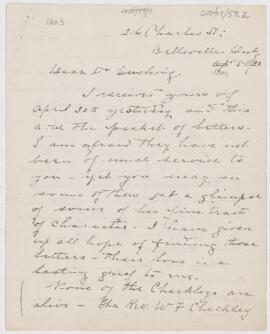 216 Charles St;
Belleville Ont
Dear Dr Cushing.
I received yours of
April 30th yesterday and this
a.m. the packet of letters.
I am afraid they have not
been of much service to
you – yet you may in
some of them get a glimpse
of some of his fine traits
of character – I have given
up all hope of finding those
letters – Their loss is a
lasting grief to me.
None of the Checkleys are
alive – The Rev. W F Checkley